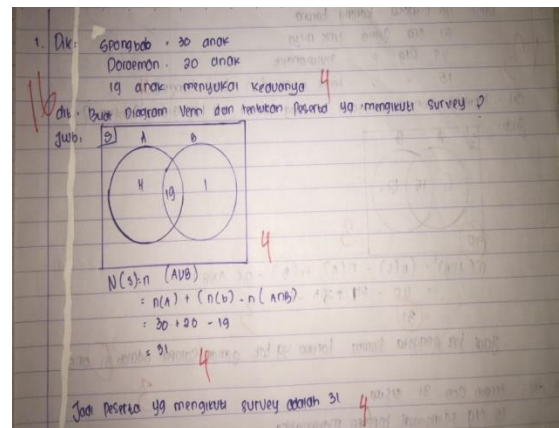 1. Dik: Spongbob : 30 anak
Doraemon : 20 anak
19 anak menyukai keduanya 4
16
dit : Buat Diagram Venn dan tentukan Peserta yg mengikuti survey ?
Jwb:
S A B
11 19 1
4
N(s)=n (AUB)
= n(A) + (n(b) - n(A∩B)
= 30 + 20 - 19
= 31
4
Jadi peserta yg mengikuti survey adalah 31 4